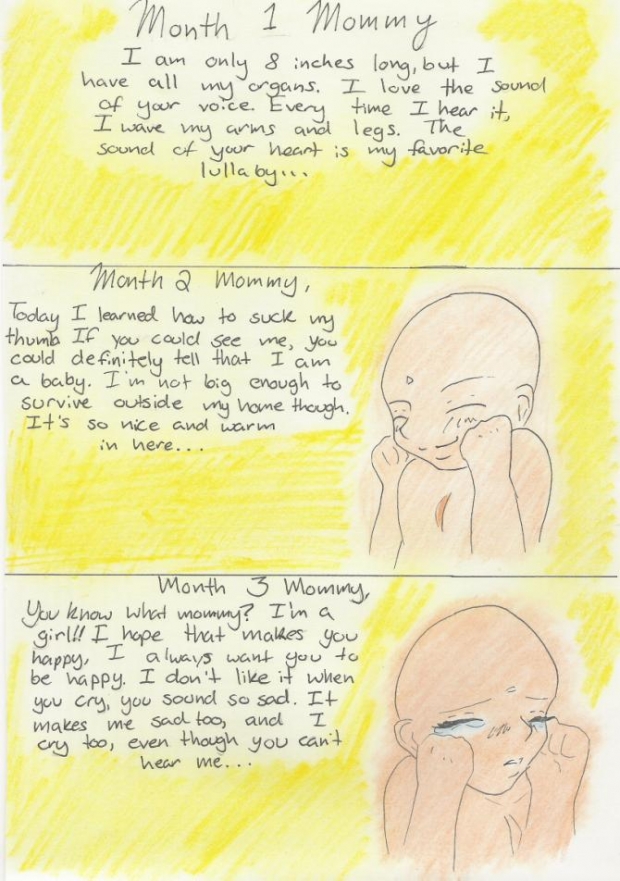 Month 1 Mommy
I am only 8 inches long, but I
have all my organs. I love the sound
of your voice. Every time I hear it,
I wave my arms and legs. The
sound of your heart is my favorite
lullaby...
Month 2 Mommy,
Today I learned how to suck my
thumb If you could see me, you
could definitely tell that I am
a baby. I'm not big enough to
survive outside my home though.
It's so nice and warm
in here...
Month 3 Mommy,
You know what mommy? I'm a
girl!! I hope that makes you
happy, I always want you to
be happy. I don't like it when
you cry, you sound so sad. It
makes me sad too, and I
cry too, even though you can't
hear me...